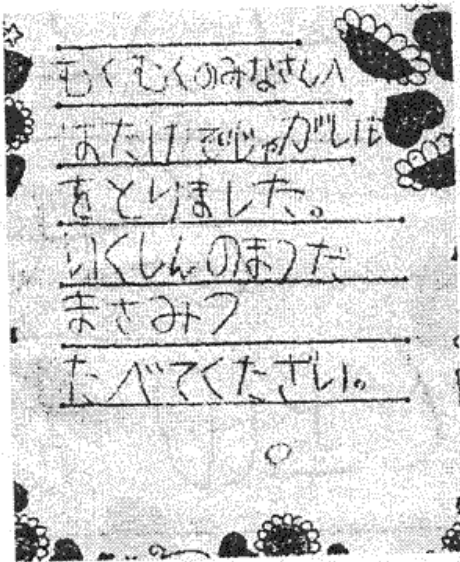 むくむくのみなさんへ
はたけでじゃがいも
をとりました。
いくしんのまつだ
まさみつ
たべてくたざい。